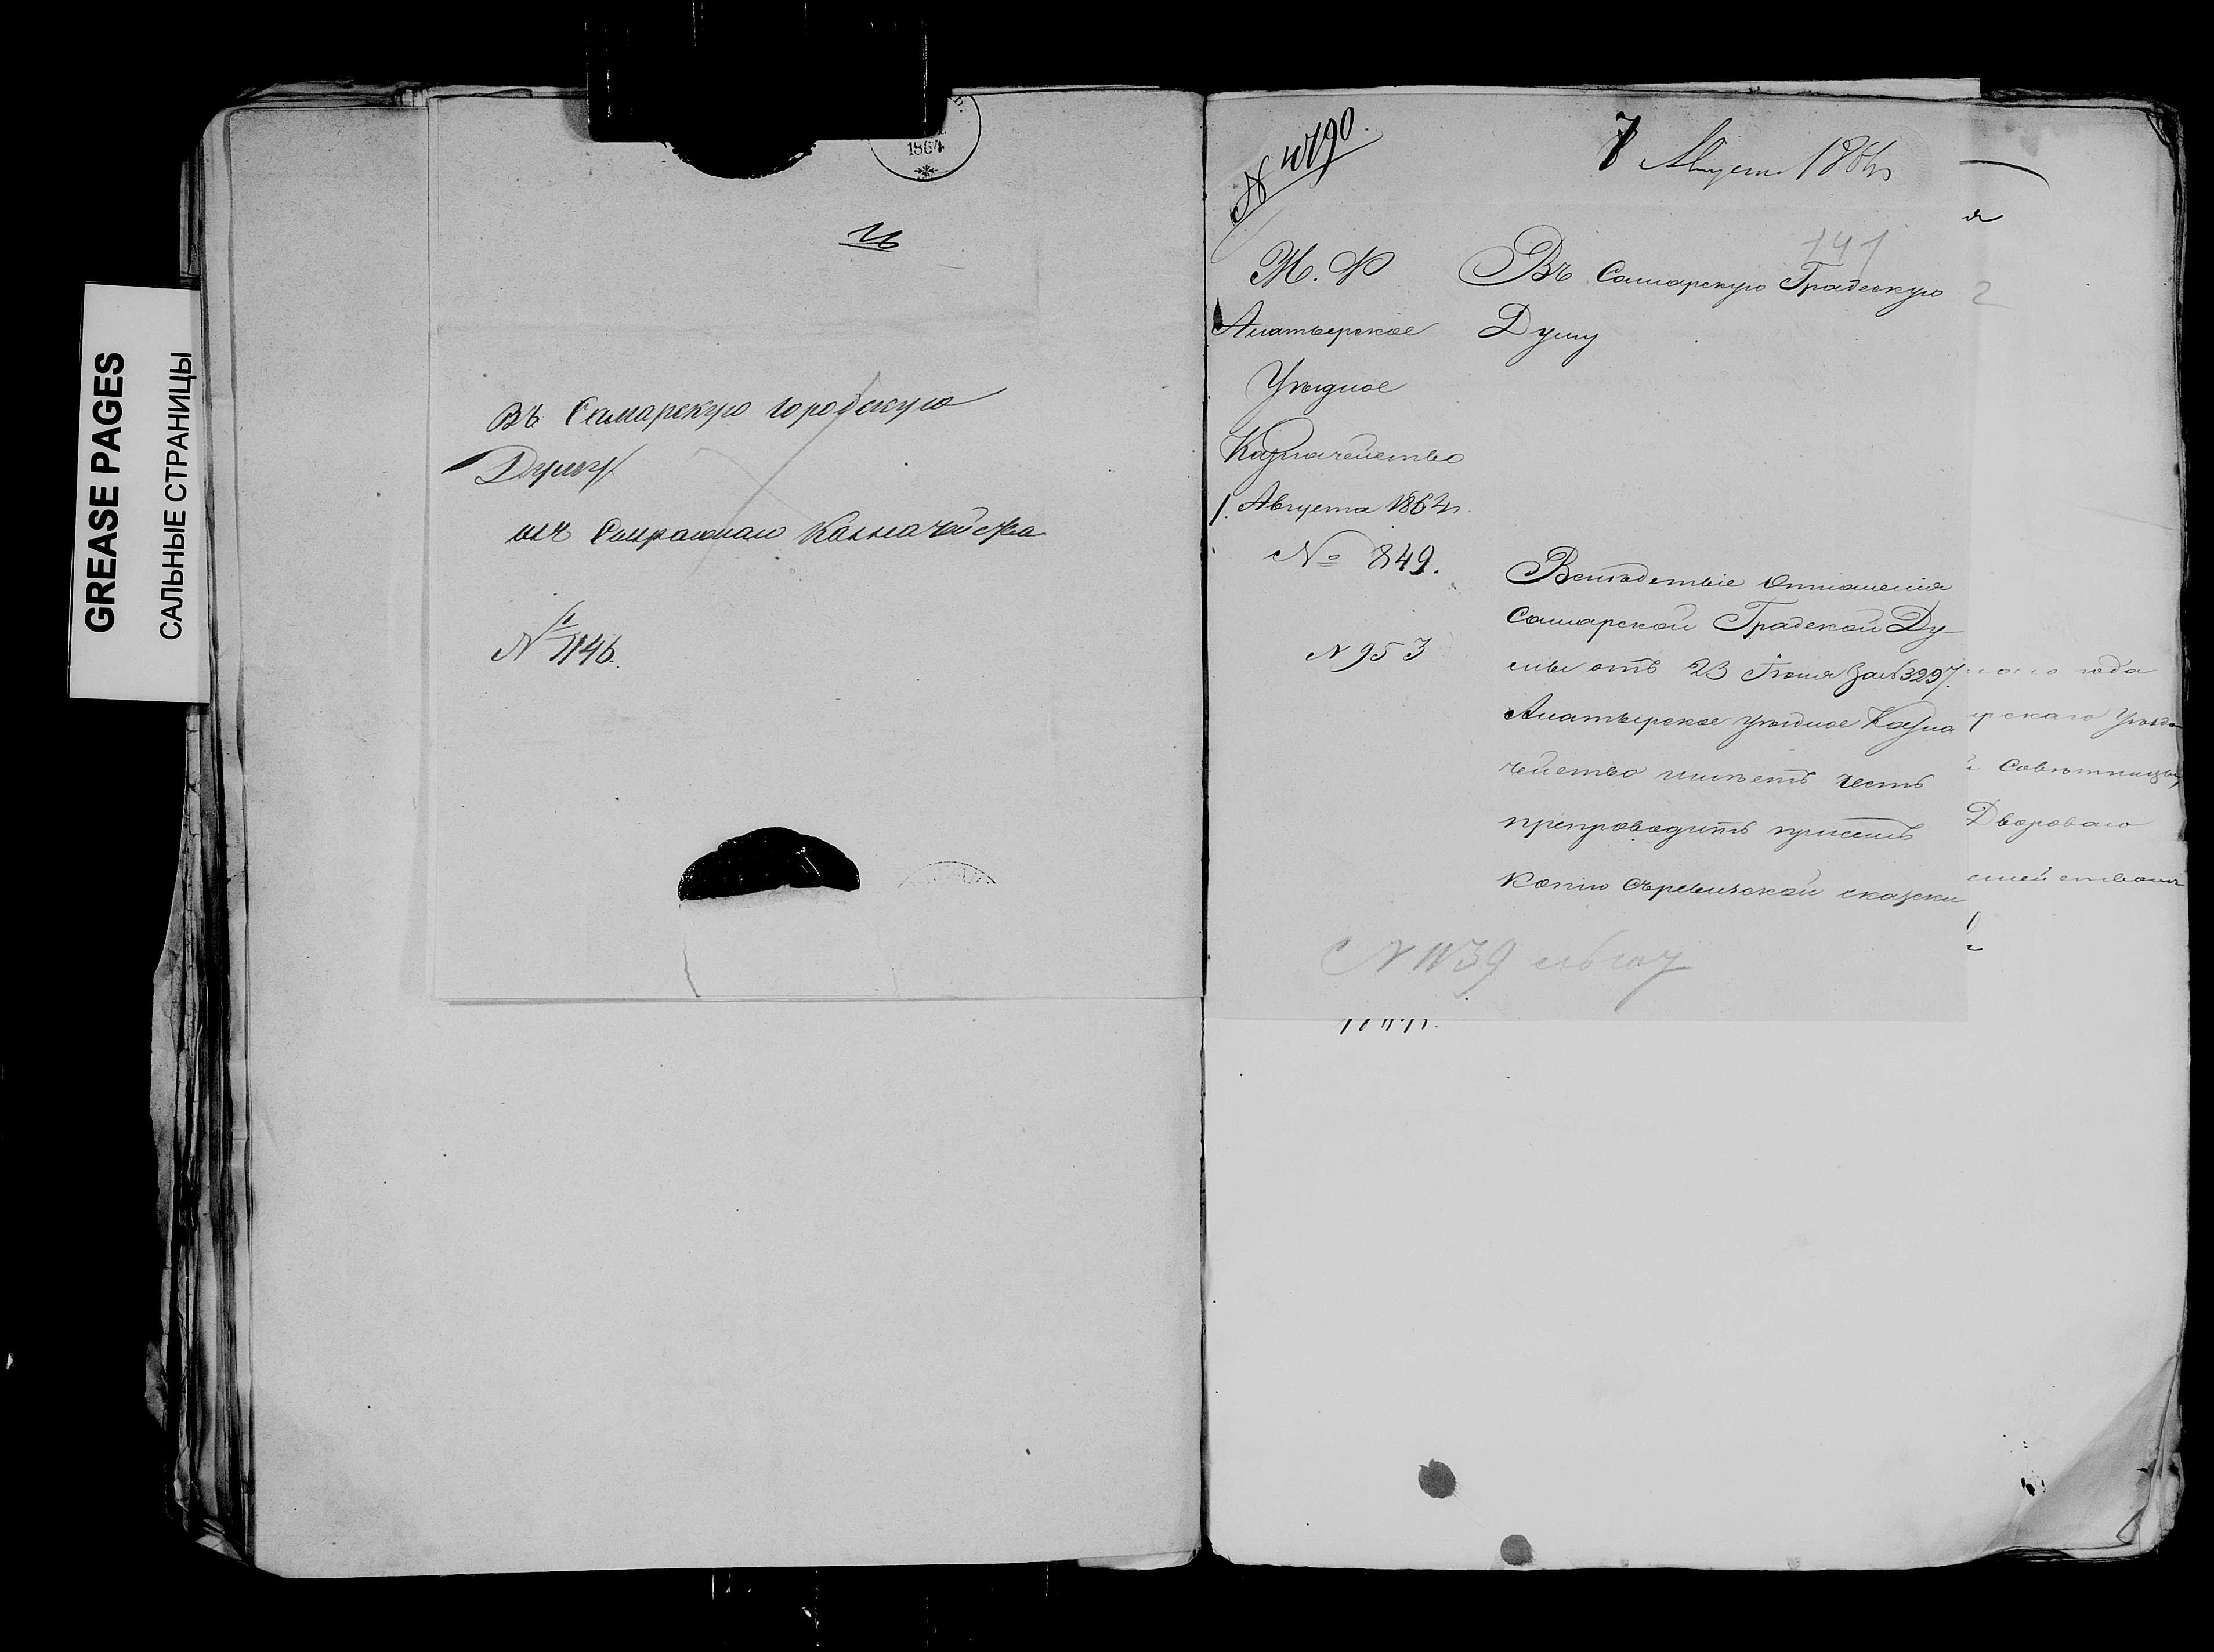 GREASE PAGES
САЛЬНЫЕ СТРАНИЦЫ
1864
Въ Самарскую городскую
Думу
изъ Казначейства
№ 1146.
7 Августа 1864
№ 4090.
141
М. Ф.
Алатырское
Уѣздное
Казначейство
1. Августа 1864 г.
№ 849.
№ 953
Въ Самарскую Градскую
Думу
Вслѣдствіе отношенія
Самарской Градской Ду-
мы отъ 23 Іюня за № 3297.
Алатырское уѣздное Казна
чейство имѣетъ честь
препроводить при семъ
копію съ ревизской сказки
№ 1139
года
рскаго Уѣзда
Совѣтницы
Двороваго